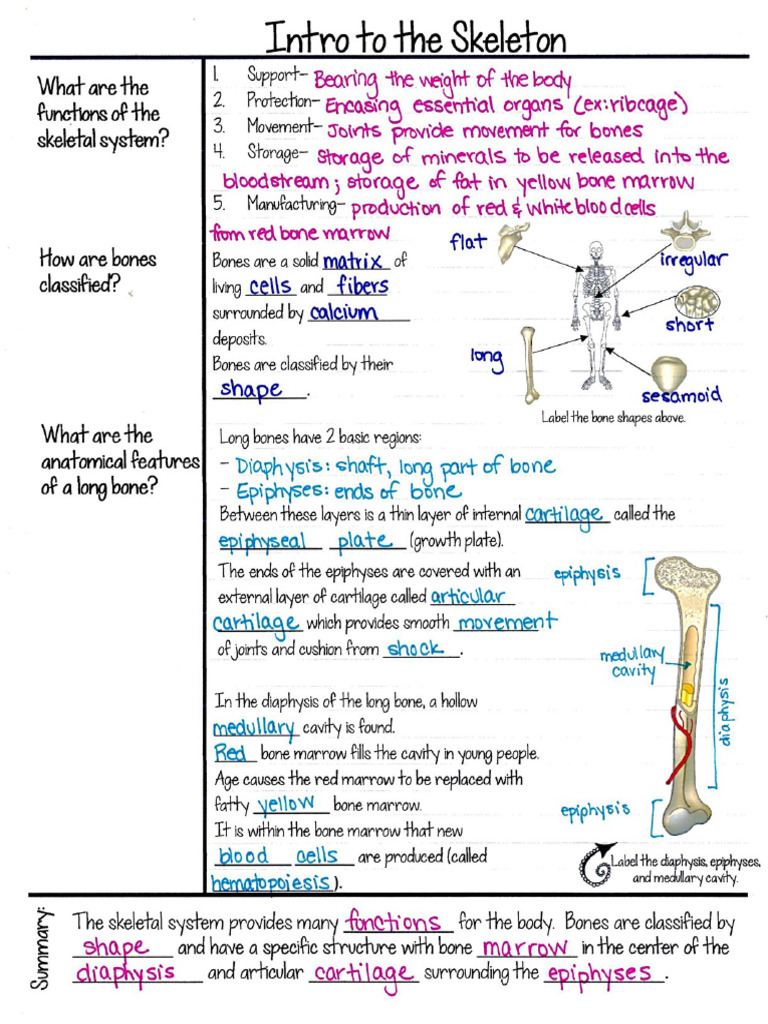 Intro to the Skeleton
What are the
functions of the
skeletal system?
1. Support- Bearing the weight of the body
2. Protection- Encasing essential organs (ex:ribcage)
3. Movement- Joints provide movement for bones
4. Storage- Storage of minerals to be released into the
bloodstream; storage of fat in yellow bone marrow
5. Manufacturing- production of red & white blood cells
from red bone marrow
How are bones
classified?
Bones are a solid matrix of
living cells and fibers
surrounded by calcium
deposits.
Bones are classified by their
shape.
flat
irregular
short
long
sesamoid
Label the bone shapes above.
What are the
anatomical features
of a long bone?
Long bones have 2 basic regions:
- Diaphysis: shaft, long part of bone
- Epiphyses: ends of bone
Between these layers is a thin layer of internal cartilage called the
epiphyseal plate (growth plate).
The ends of the epiphyses are covered with an
external layer of cartilage called articular
cartilage which provides smooth movement
of joints and cushion from shock.
In the diaphysis of the long bone, a hollow
medullary cavity is found.
Red bone marrow fills the cavity in young people.
Age causes the red marrow to be replaced with
fatty yellow bone marrow.
It is within the bone marrow that new
blood cells are produced (called
hematopoiesis).
epiphysis
medullary
cavity
diaphysis
epiphysis
Label the diaphysis, epiphyses,
and medullary cavity.
Summary:
The skeletal system provides many functions for the body. Bones are classified by
shape and have a specific structure with bone marrow in the center of the
diaphysis and articular cartilage surrounding the epiphyses.